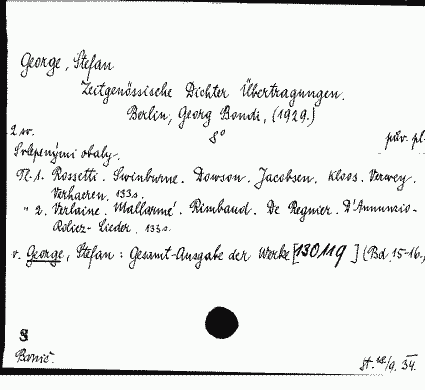 George, Stefan
Zeitgenössische Dichter Übertragungen.
Berlin, Georg Bondi, (1929.)
2 sv. 8° pův. pl.
S vlepenými obaly.
N. 1. Rossetti. Swinburne. Dowson. Jacobsen. Kloos. Verwey.
Verhaeren. 133 s.
" 2. Verlaine. Mallarmé. Rimbaud. De Regnier. D'Annunzio-
Rolicz-Lieder. 133 s.
v. George, Stefan: Gesamt-Ausgabe der Werke [130119] (Bd. 15-16.)
S
st. /9. 34.